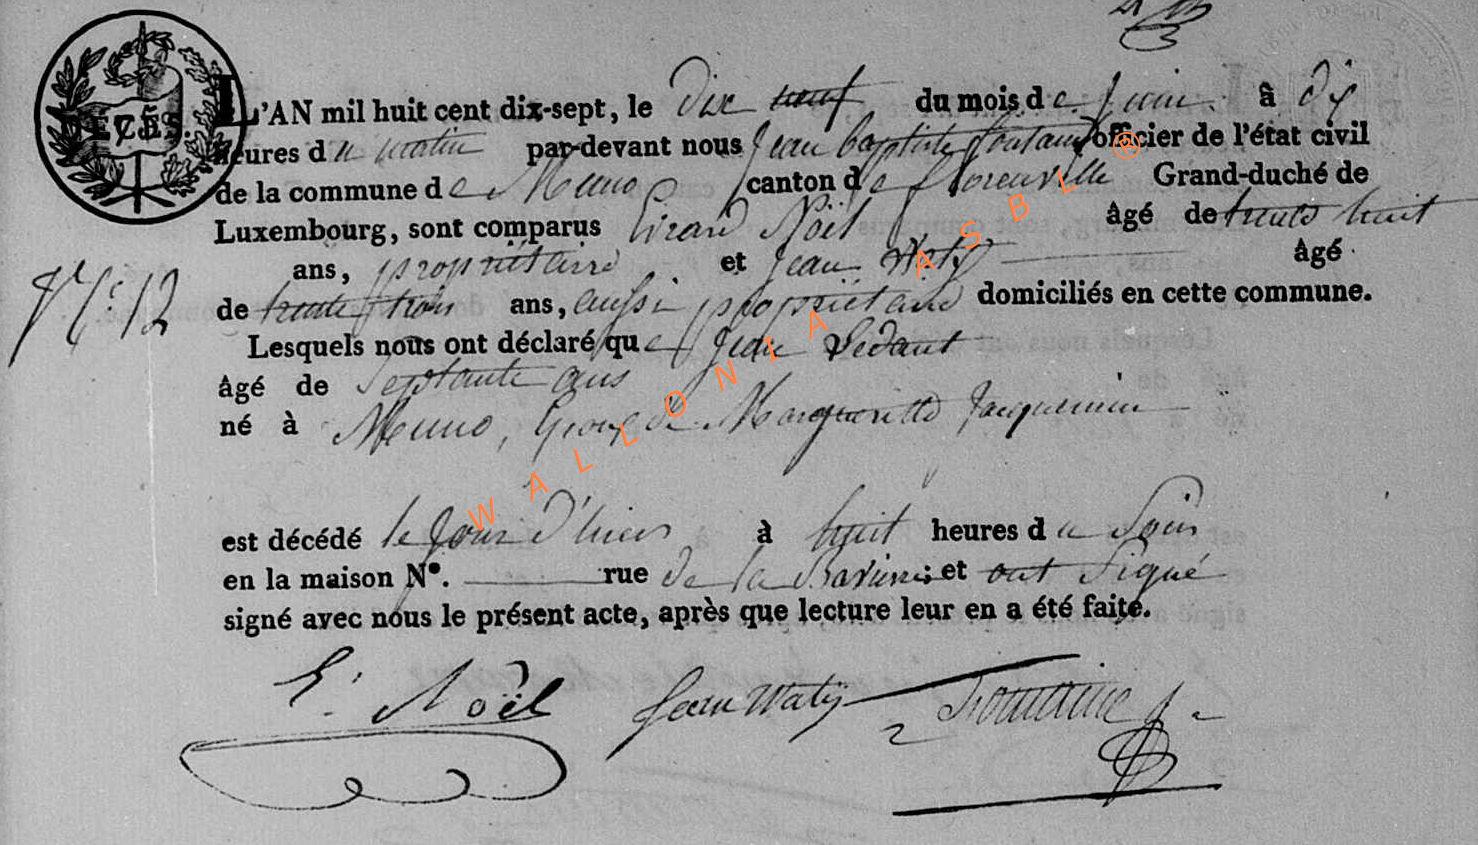 L'AN mil huit cent dix-sept, le dix neuf du mois de Juin à dix
heures du matin par-devant nous Jean baptiste fontaine officier de l'état civil
de la commune de Muno canton de florenville Grand-duché de
Luxembourg, sont comparus Girard Noël âgé de trente huit
ans, propriétaire et Jean Waty âgé
de trente trois ans, aussi propriétaire domiciliés en cette commune.
N.º 12
Lesquels nous ont déclaré que Jean Sedant
âgé de Septante ans
né à Muno, Epoux de Margueritte Jacquemin
est décédé le Jour d'hier à huit heures du Soir
en la maison Nº. rue de la Ravine; et ont signé
signé avec nous le présent acte, après que lecture leur en a été faite.
G. Noël Jean Waty Fontaine
WALLONIA ASBL ®